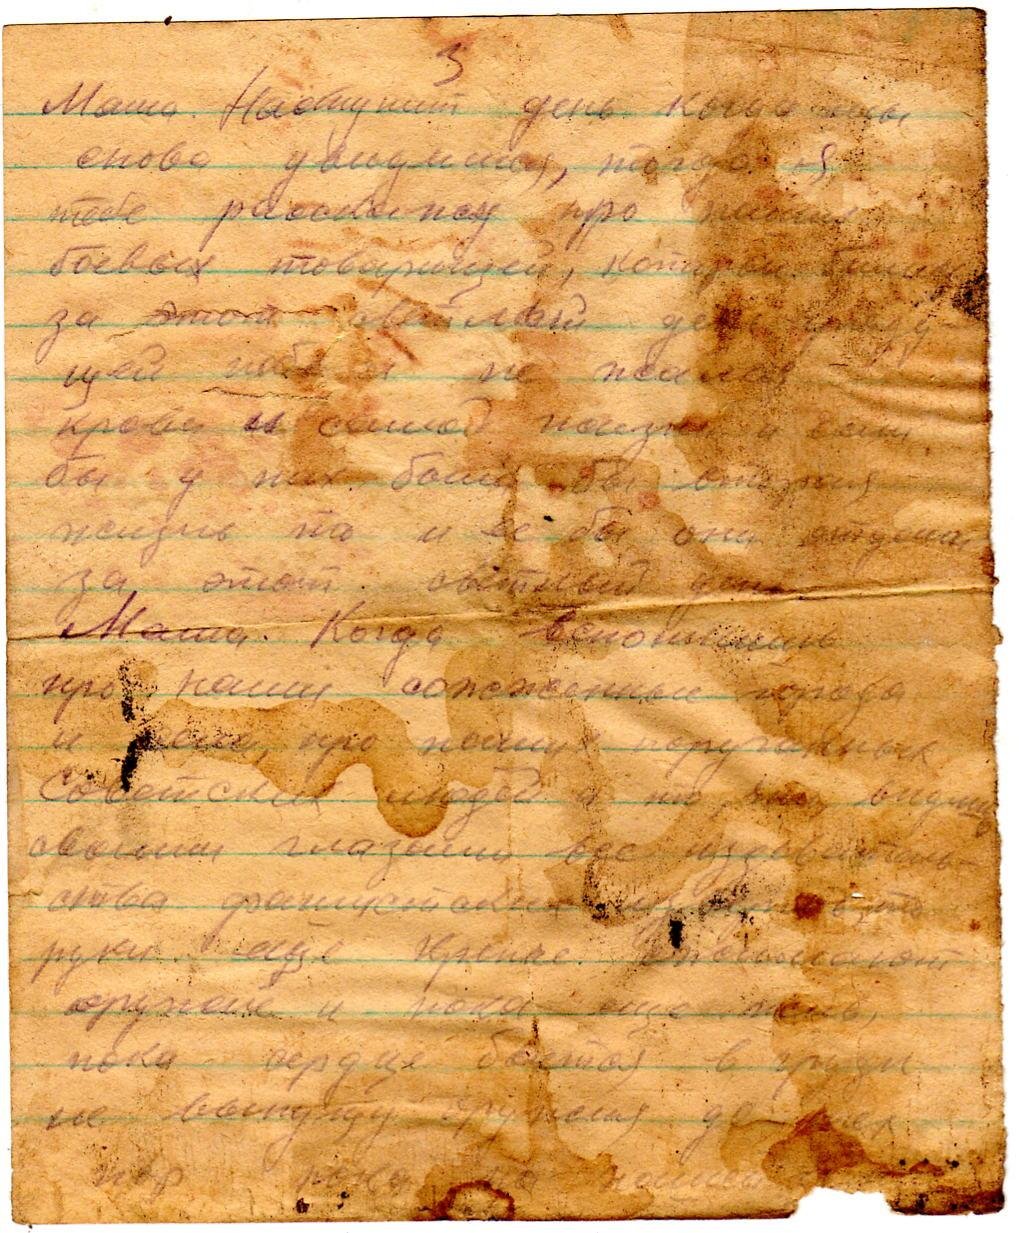 3
Маша. Наступит день когда мы
снова увидимся, тогда я
тебе расскажу про наших
боевых товарищей, которые
за этот светлый день
щей не жалея
крови и самой жизни и если
бы у них была бы вторая
жизнь то и ее бы они отдали
за этот светлый день
Маша. Когда вспомнишь
про наши сожженные города
и села, про наших поруганных
Советских людей и то что видишь
своими глазами все издеватель-
ства фашистских
руки еще крепче сжимают
оружие и пока еще жив,
пока сердце бьется в груди
не выпущу оружия до тех
пор пока на нашей